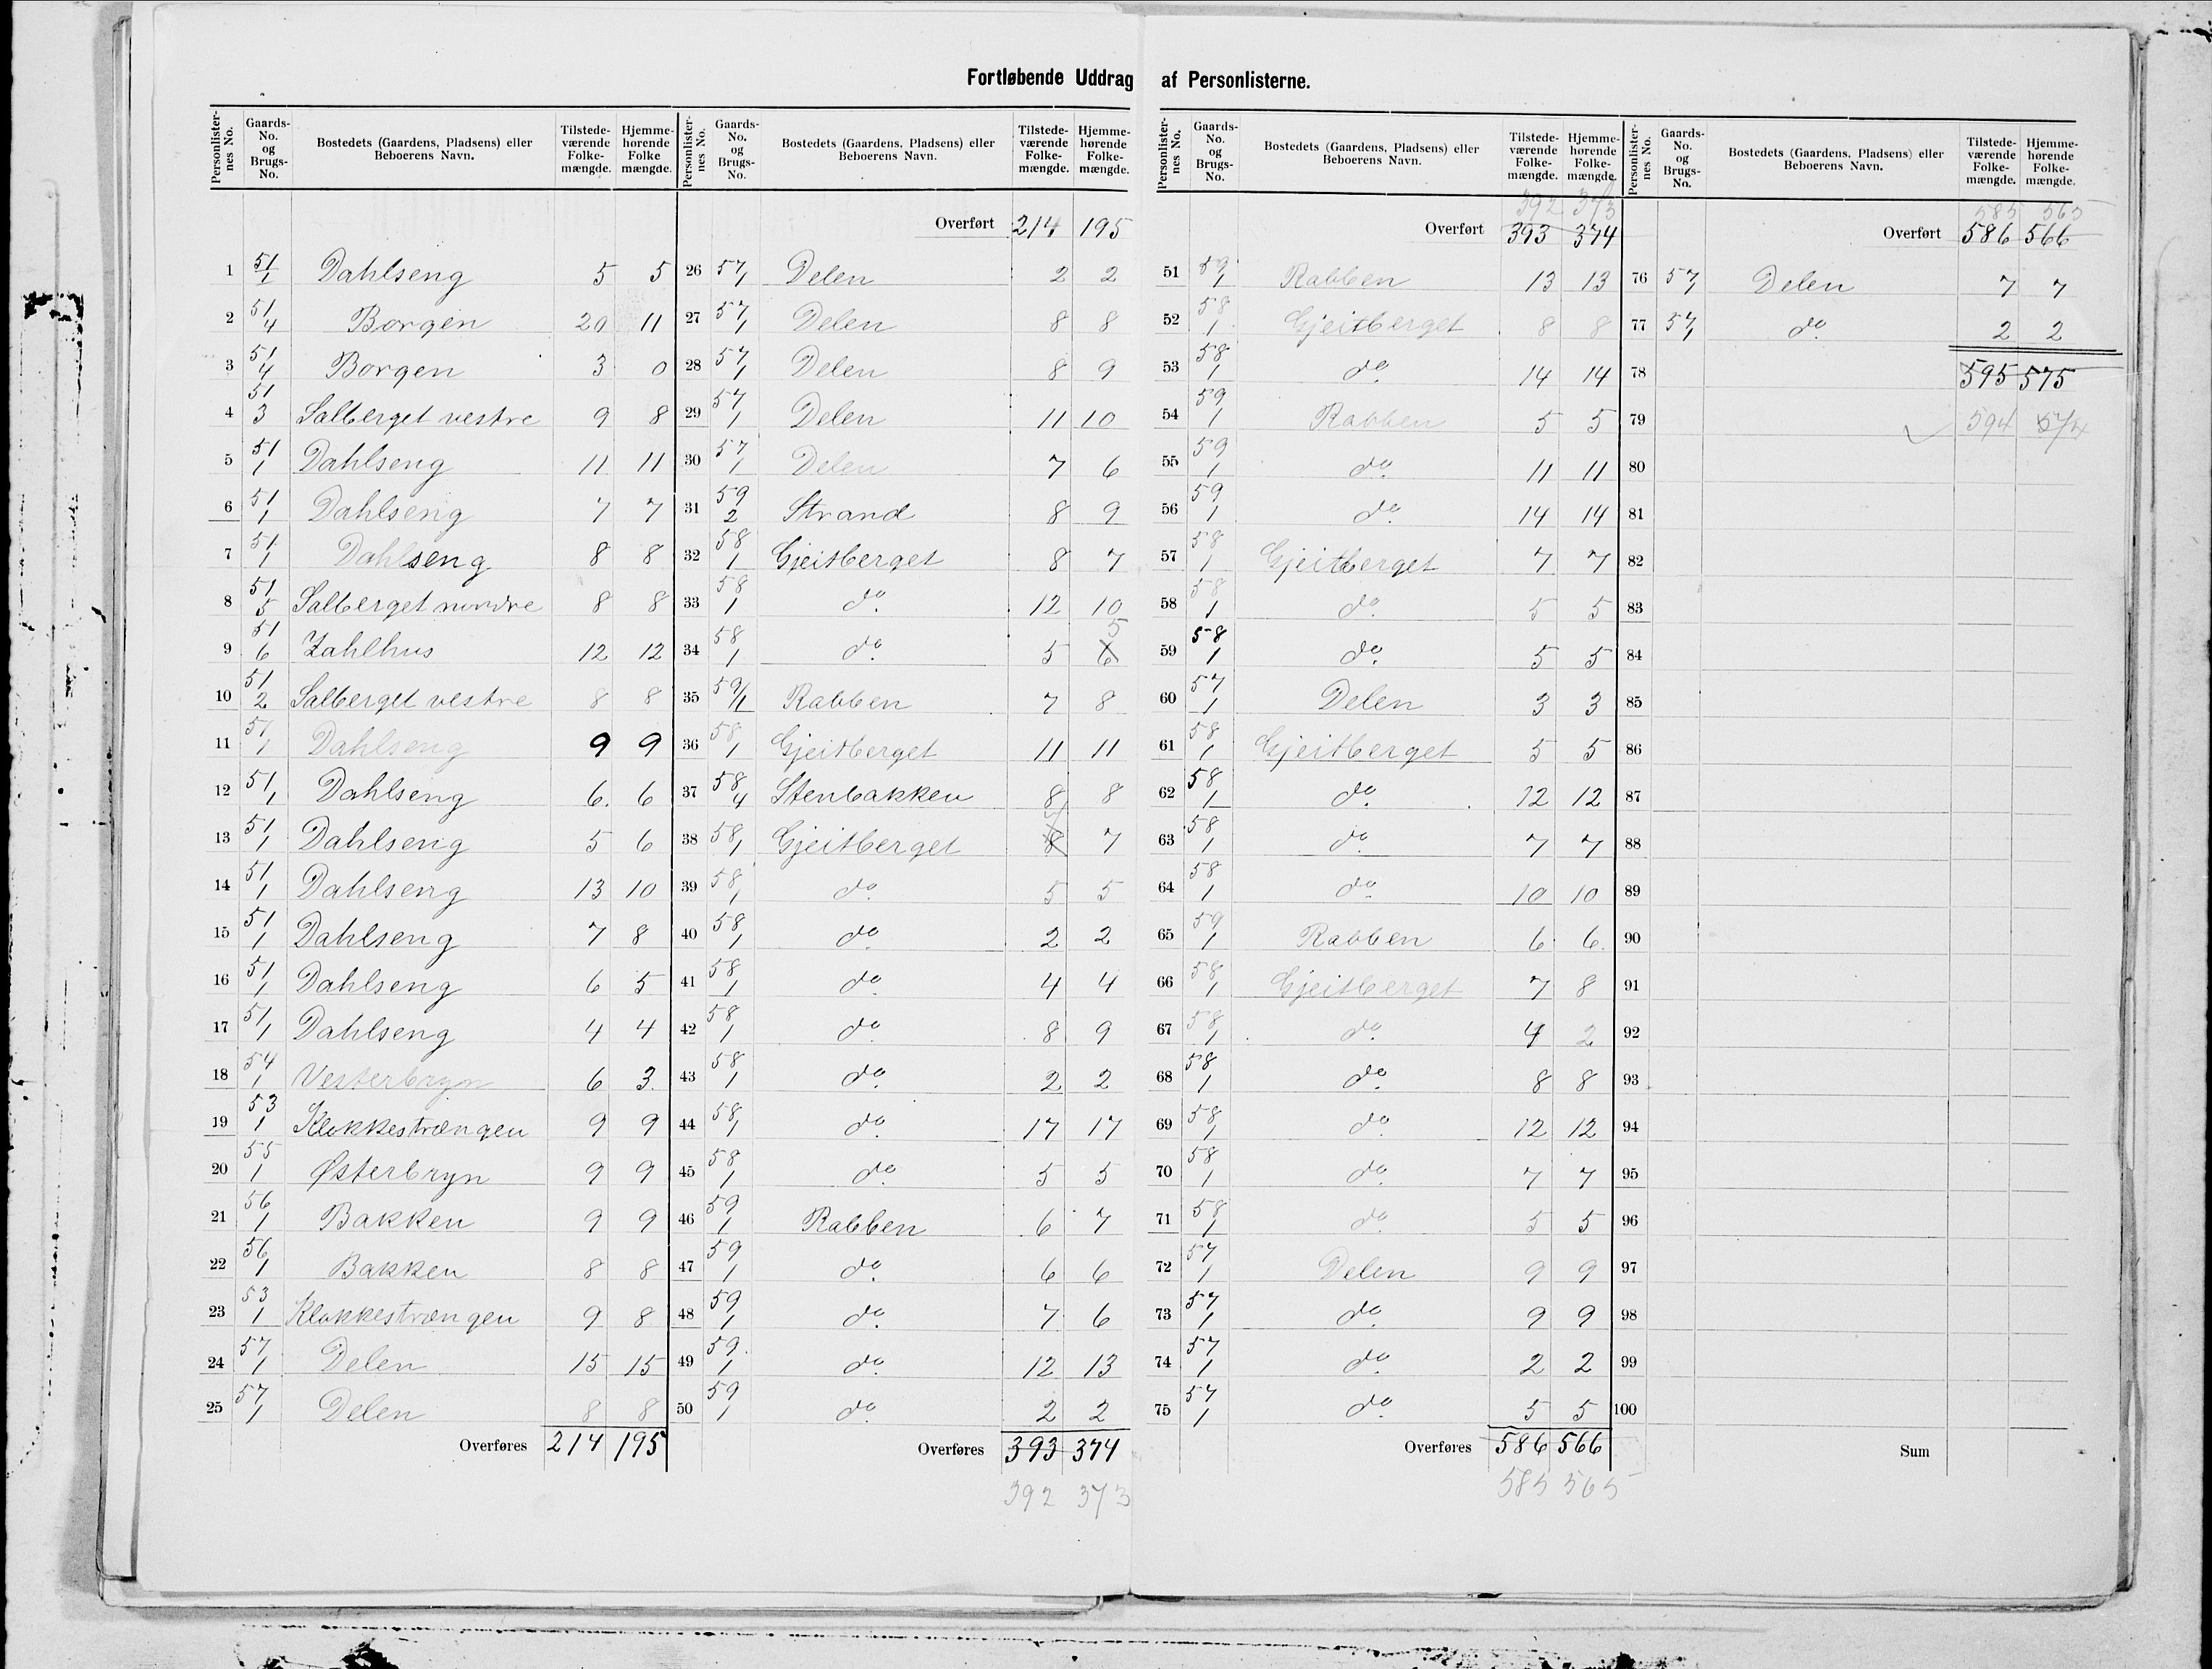 Fortløbende Uddrag af Personlisterne.
Personlisternes No. Gaards-No. og Brugs-No. Bostedets (Gaardens, Pladsens) eller Beboerens Navn. Tilstedeværende Folkemængde. Hjemmehørende Folkemængde.
1 51/1 Dahlseng 5 5
2 51/4 Borgen 20 11
3 51/4 Borgen 3 0
4 51/3 Salberget vestre 9 8
5 51/1 Dahlseng 11 11
6 51/1 Dahlseng 7 7
7 51/1 Dahlseng 8 8
8 51/5 Salberget nordre 8 8
9 51/6 Zahlhus 12 12
10 51/2 Salberget vestre 8 8
11 51/1 Dahlseng 9 9
12 51/1 Dahlseng 6 6
13 51/1 Dahlseng 5 6
14 51/1 Dahlseng 13 10
15 51/1 Dahlseng 7 8
16 51/1 Dahlseng 6 5
17 51/1 Dahlseng 4 4
18 54/1 Vesterbryn 6 3
19 53/1 Klokkestrængen 9 9
20 55/1 Østerbryn 9 9
21 56/1 Bakken 9 9
22 56/1 Bakken 8 8
23 53/1 Klokkestrængen 9 8
24 57/1 Delen 15 15
25 57/1 Delen 8 8
Overføres 214 195
Personlisternes No. Gaards-No. og Brugs-No. Bostedets (Gaardens, Pladsens) eller Beboerens Navn. Tilstedeværende Folkemængde. Hjemmehørende Folkemængde.
Overført 214 195
26 57/1 Delen 2 2
27 57/1 Delen 8 8
28 57/1 Delen 8 9
29 57/1 Delen 11 10
30 57/1 Delen 7 6
31 59/2 Strand 8 9
32 58/1 Gjeitberget 8 7
33 58/1 do. 12 10
34 58/1 do. 5 6 5
35 59/1 Rabben 7 8
36 58/1 Gjeitberget 11 11
37 58/4 Stenbakken 8 8
38 58/1 Gjeitberget 8 7 7
39 58/1 do. 5 5
40 58/1 do. 2 2
41 58/1 do. 4 4
42 58/1 do. 8 9
43 58/1 do. 2 2
44 58/1 do. 17 17
45 58/1 do. 5 5
46 59/1 Rabben 6 7
47 59/1 do. 6 6
48 59/1 do. 7 6
49 59/1 do. 12 13
50 59/1 do. 2 2
Overføres 393 374
392 373
Personlisternes No. Gaards-No. og Brugs-No. Bostedets (Gaardens, Pladsens) eller Beboerens Navn. Tilstedeværende Folkemængde. Hjemmehørende Folkemængde.
392 373
Overført 393 374
51 59/1 Rabben 13 13
52 58/1 Gjeitberget 8 8
53 58/1 do. 14 14
54 59/1 Rabben 5 5
55 59/1 do. 11 11
56 59/1 do. 14 14
57 58/1 Gjeitberget 7 7
58 58/1 do. 5 5
59 58/1 do. 5 5
60 57/1 Delen 3 3
61 58/1 Gjeitberget 5 5
62 58/1 do. 12 12
63 58/1 do. 7 7
64 58/1 do. 10 10
65 59/1 Rabben 6 6
66 58/1 Gjeitberget 7 8
67 58/1 do. 4 2
68 58/1 do. 8 8
69 58/1 do. 12 12
70 58/1 do. 7 7
71 58/1 do. 5 5
72 57/1 Delen 9 9
73 57/1 do. 9 9
74 57/1 do. 2 2
75 57/1 do. 5 5
Overføres 586 566
585 565
Personlisternes No. Gaards-No. og Brugs-No. Bostedets (Gaardens, Pladsens) eller Beboerens Navn. Tilstedeværende Folkemængde. Hjemmehørende Folkemængde.
585 565
Overført 586 566
76 57/1 Delen 7 7
77 57/1 do. 2 2
78 595 575
79 594 574
80
81
82
83
84
85
86
87
88
89
90
91
92
93
94
95
96
97
98
99
100
Sum